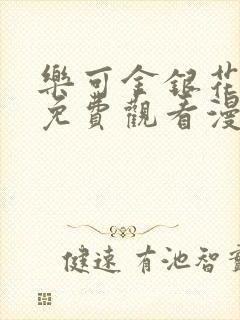 樂可金銀花
免費觀看漫
健速 有池智